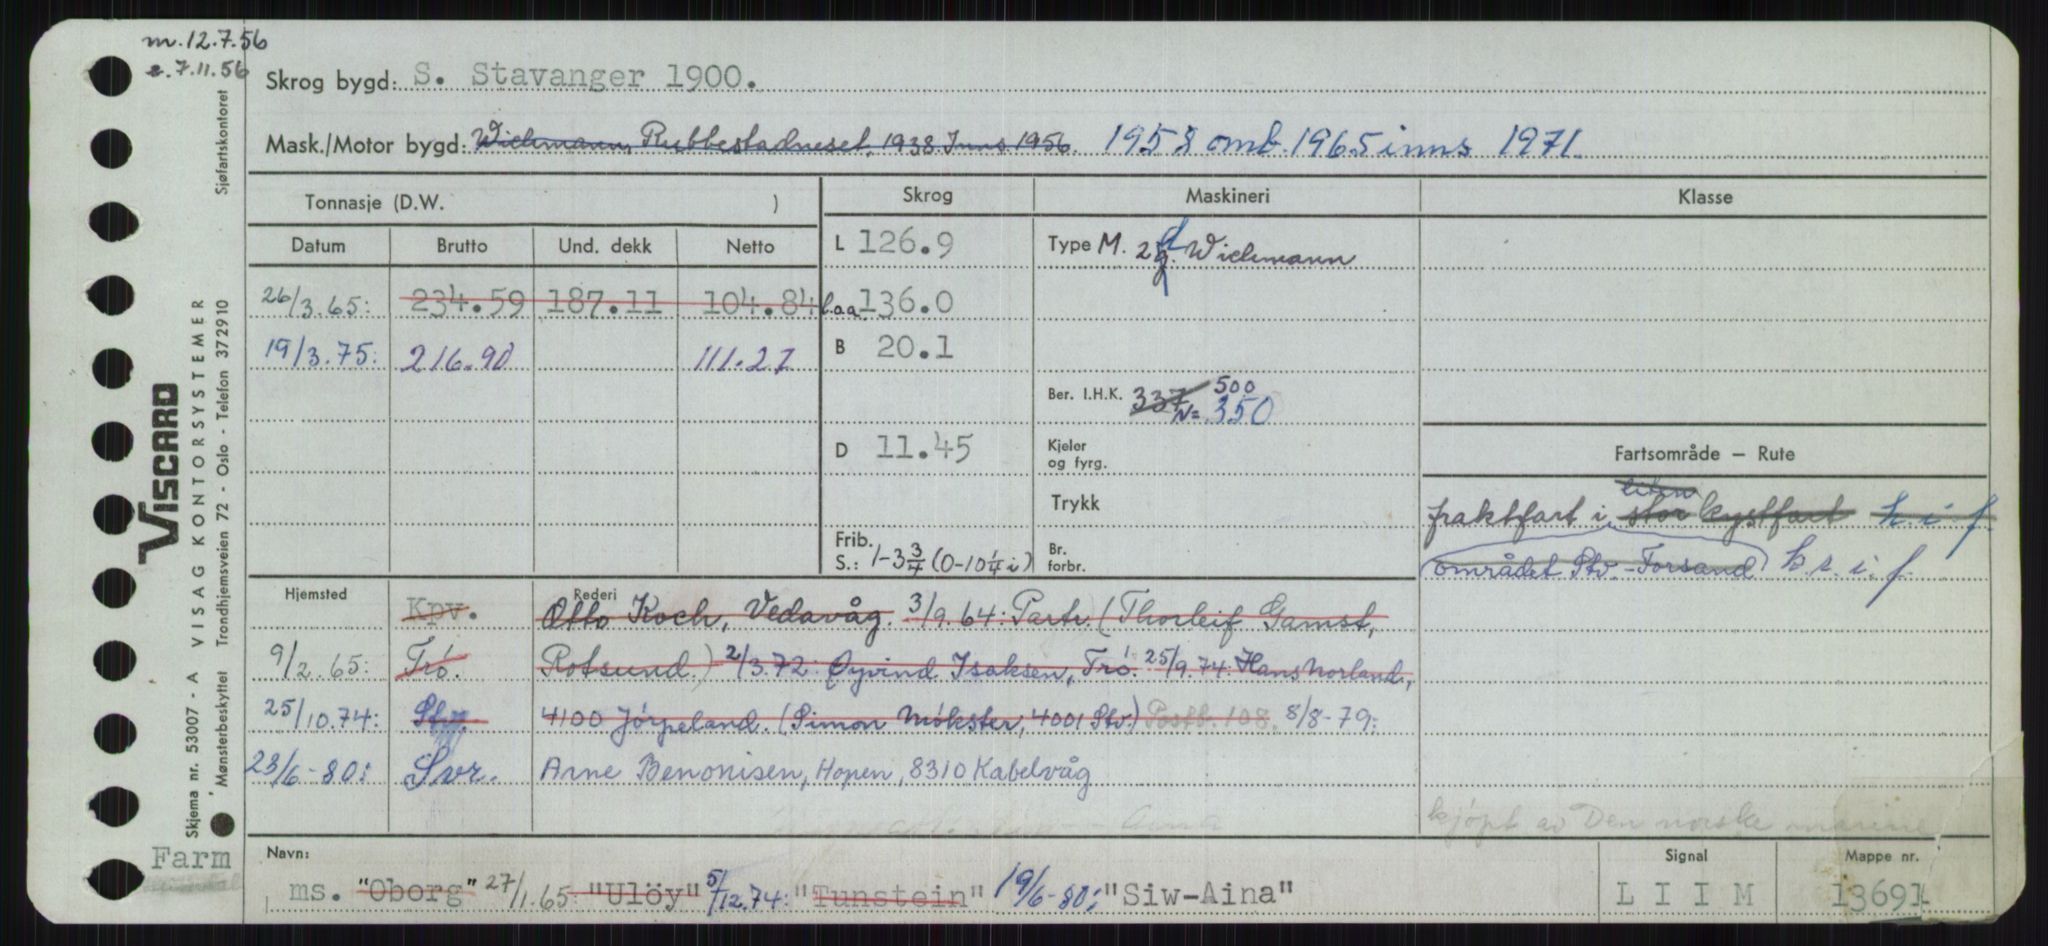 m. 12.7.56
e. 7.11.56
Skrog bygd: S. Stavanger 1900.
Mask./Motor bygd: Wichmann, Rubbestadneset, 1938 Inns 1956. 1958 omb. 1965 inns 1971.
Tonnasje (D.W. ) Skrog Maskineri Klasse
Datum Brutto Und. dekk Netto L 126.9 Type M. 2 Wichmann
26/3.65: 234.59 187.11 104.84 l.o.a. 136.0
19/3.75: 216.90 111.27 B 20.1
Ber. I.H.K. 337 500
N= 350
D 11.45 Kjeler og fyrg. Fartsområde — Rute
Trykk
liten
fraktfart i stor kystfart k. i. f.
Frib. S.: 1-3 3/4 (0-10 1/4 i) Br. forbr.
området Stv. - Forsand k s. i. f.
Hjemsted Rederi
Kpv. Otto Koch, Vedavåg. 3/9.64: Partr. (Thorleif Gamst,
9/2.65: Trö. Rotsund.) 2/3.72: Øyvind Isaksen, Trö. 25/9.74: Hans Norland,
25/10.74: Stv. 4100 Jörpeland. (Simon Mökster, 4001 Stv.) Postb. 108. 8/8-79:
23/6-80: Svr. Arne Benonisen, Hopen, 8310 Kabelvåg
kjöpt av Den norske marine
Navn: Signal Mappe nr.
ms. "Oborg" 27/1.65: "Ulöy" 5/12.74: "Tunstein" 19/6-80: "Siw-Aina" L I I M 13691
Farm
Sjøfartskontoret
VISCARD
VISAG KONTORSYSTEMER
Trondhjemsveien 72 - Oslo - Telefon 372910
Skjema nr. 53007 - A
Mønsterbeskyttet